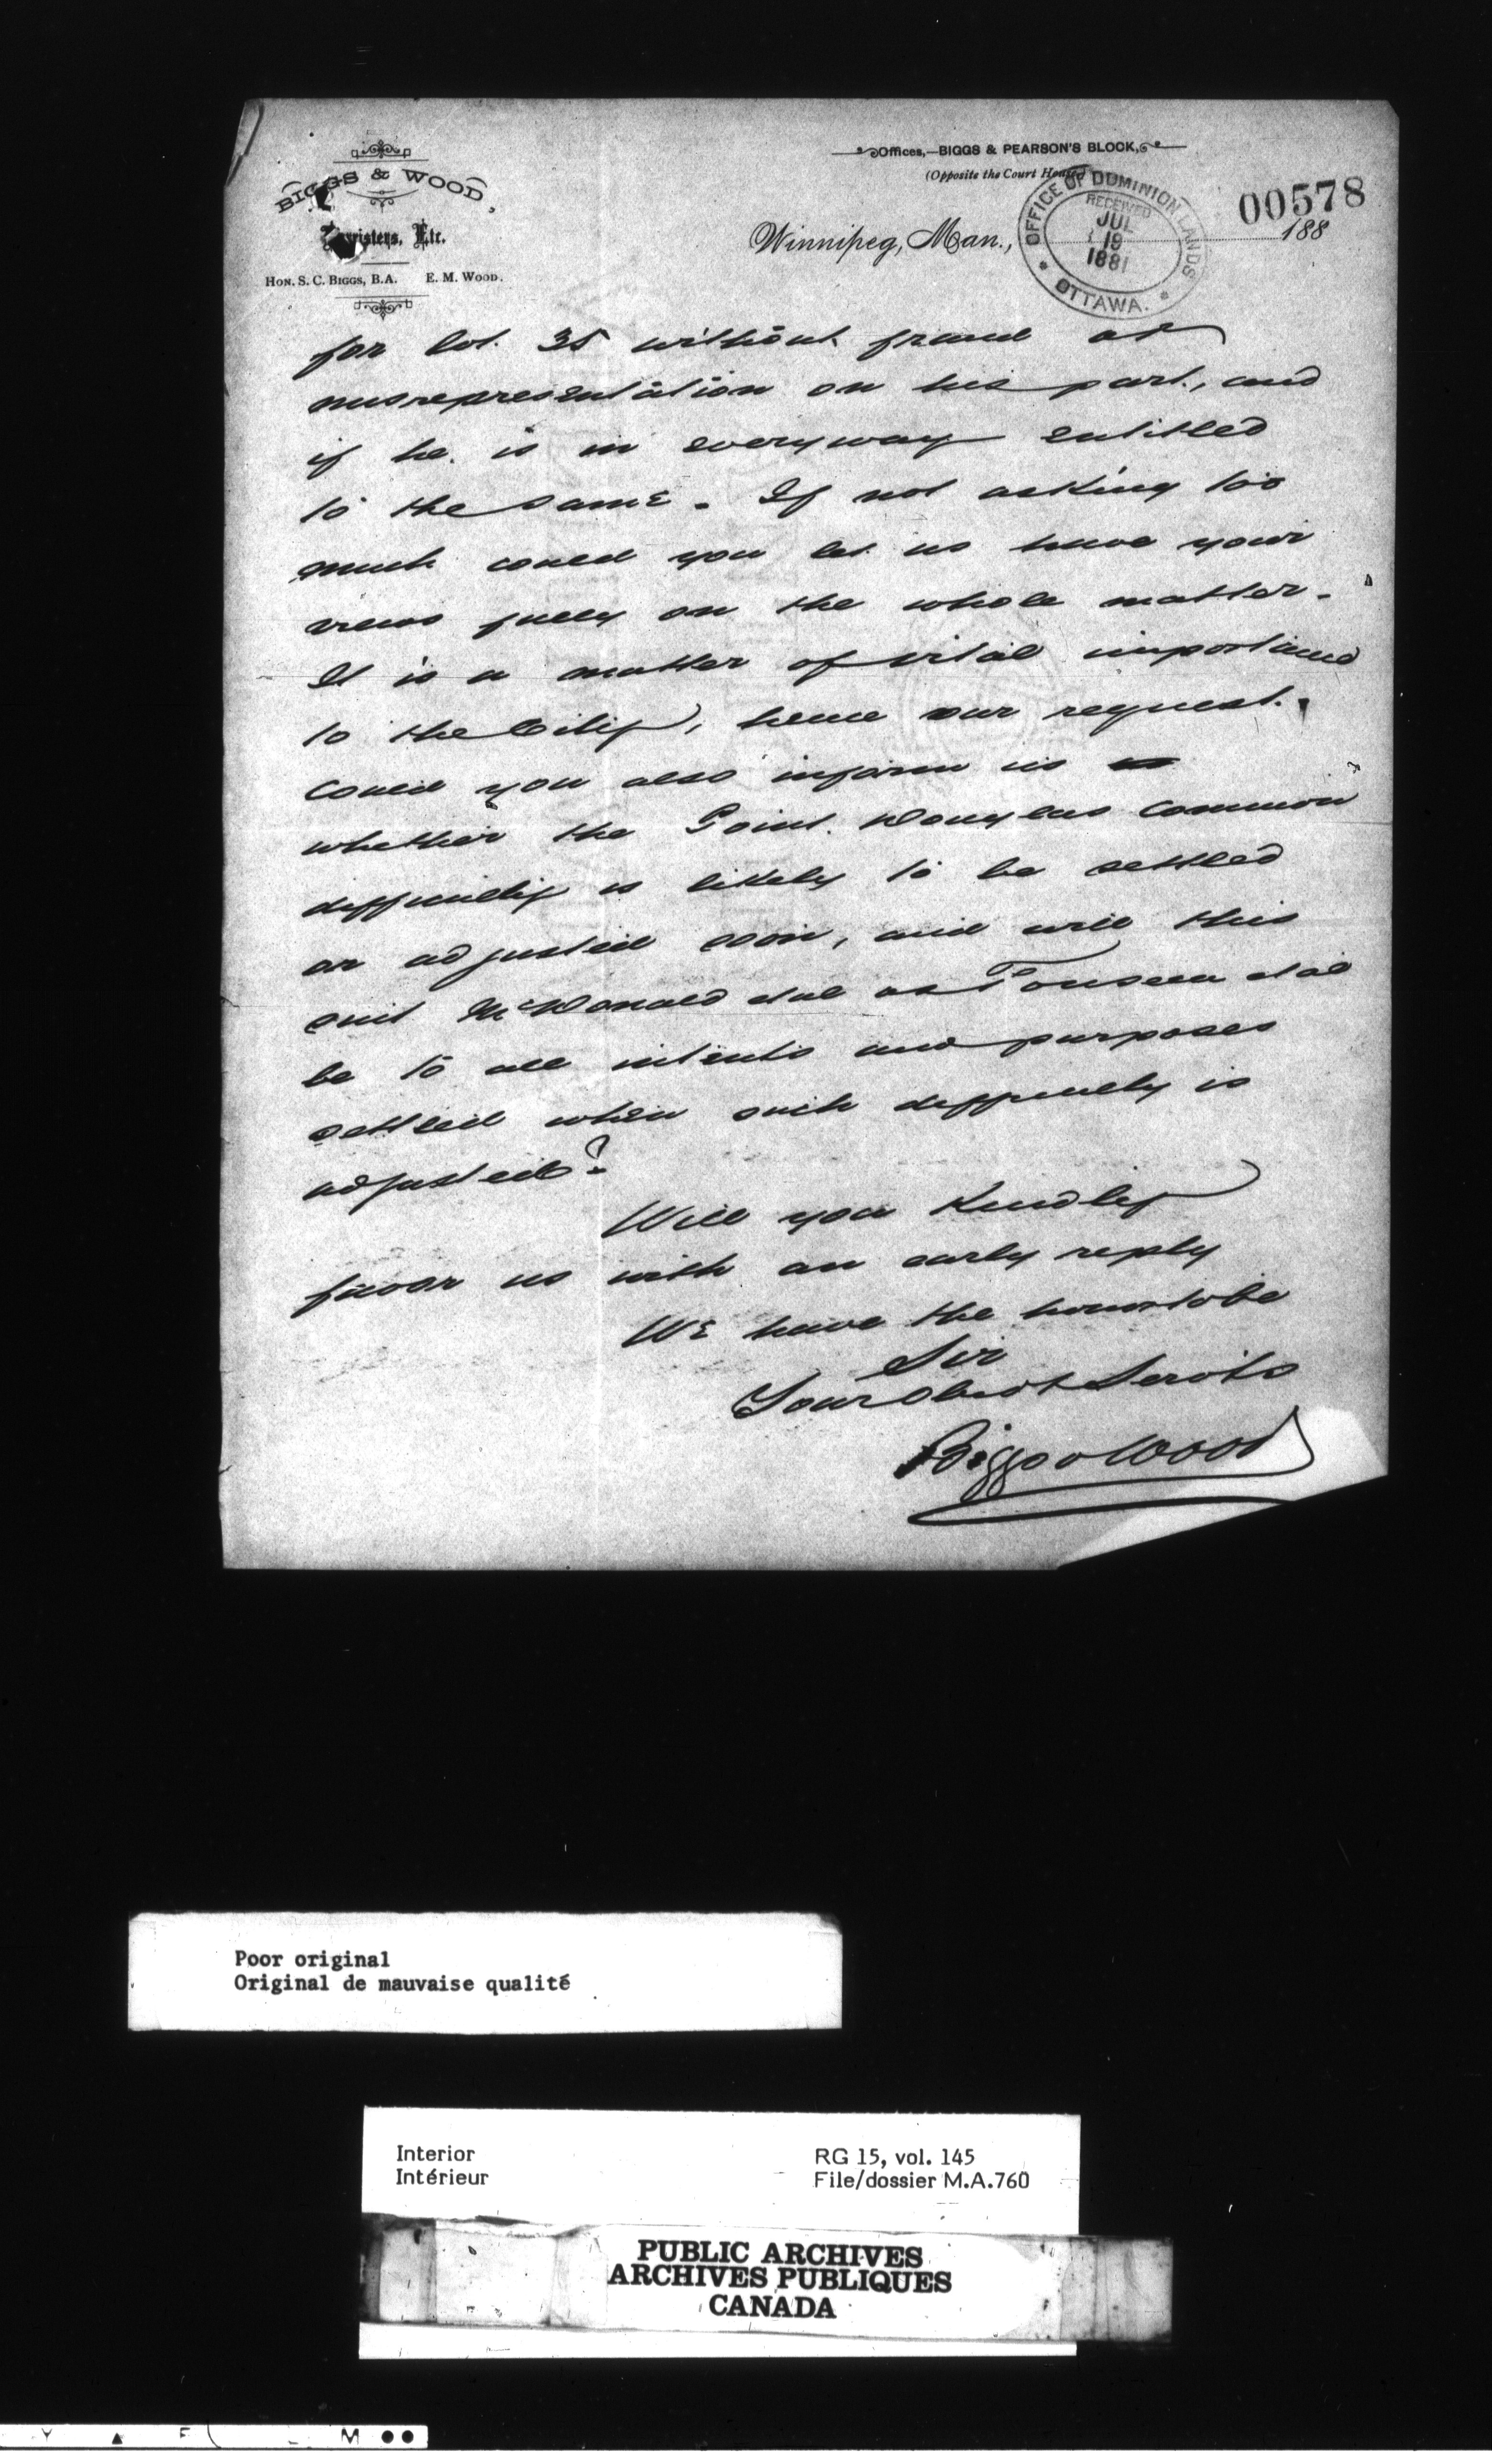 BIGGS & WOOD,
Barristers, Etc.
HON. S. C. BIGGS, B.A. E. M. WOOD.
Offices,—BIGGS & PEARSON'S BLOCK,
(Opposite the Court House)
00578
Winnipeg, Man., 188
OFFICE OF DOMINION LANDS
RECEIVED
JUL
19
1881
OTTAWA.
for lot 35 without fraud or
misrepresentation on his part, and
if he is in everyway entitled
to the same. If not asking too
much could you let us have your
views fully on the whole matter.
It is a matter of vital importance
to the City, hence our request.
Could you also inform us
whether the Point Douglas Common
difficulty is likely to be settled
or adjusted soon, and will this
suit McDonald et al vs Fonseca et al
be to all intents and purposes
settled when such difficulty is
adjusted?
Will you Kindly
favor us with an early reply
We have the honor to be
Sir
Your Obedt Servts
Biggs & Wood
Poor original
Original de mauvaise qualité
Interior RG 15, vol. 145
Intérieur File/dossier M.A.760
PUBLIC ARCHIVES
ARCHIVES PUBLIQUES
CANADA